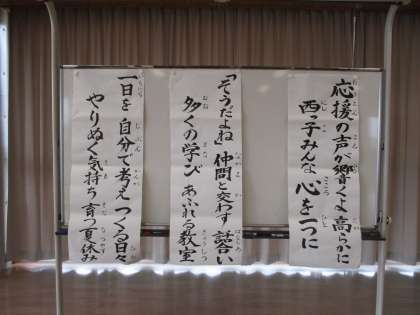 応援の声が響くよ高らかに
西っ子みんな心を一つに
「そうだよね」仲間と交わす話合い
多くの学びあふれる教室
一日を自分で考えつくる日々
やりぬく気持ち育つ夏休み